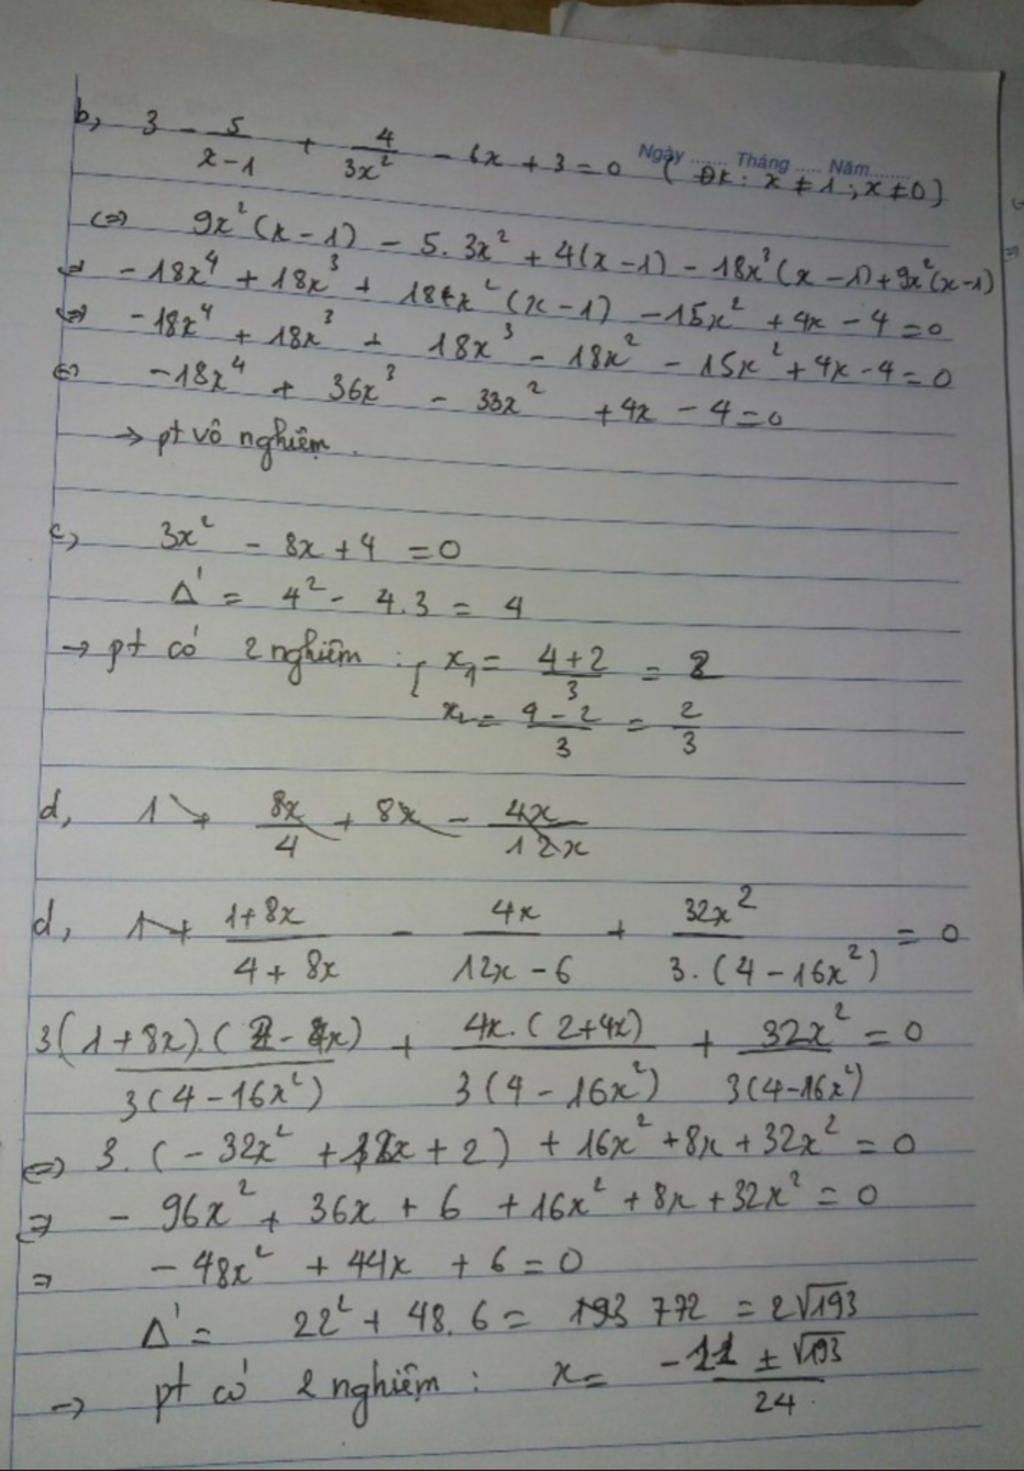 Ngày ...... Tháng ..... Năm........
b, 3 - 5/(x-1) + 4/(3x²) - 6x + 3 = 0 ( ĐK: x ≠ 1 ; x ≠ 0)
<=> 9x²(x-1) - 5.3x² + 4(x-1) - 18x³(x-1) + 9x²(x-1)
=> -18x⁴ + 18x³ + 18x²(x-1) - 15x² + 4x - 4 = 0
<=> -18x⁴ + 18x³ + 18x³ - 18x² - 15x² + 4x - 4 = 0
<=> -18x⁴ + 36x³ - 33x² + 4x - 4 = 0
→ pt vô nghiệm.
c, 3x² - 8x + 4 = 0
Δ' = 4² - 4.3 = 4
→ pt có 2 nghiệm : { x₁ = (4+2)/3 = 2
x₂ = (4-2)/3 = 2/3
d, 1 8x/4 + 8x - 4x/12x
d, (1+8x)/(4+8x) - 4x/(12x-6) + 32x²/(3.(4-16x²)) = 0
3(1+8x).(2-4x)/(3(4-16x²)) + 4x.(2+4x)/(3(4-16x²)) + 32x²/(3(4-16x²)) = 0
<=> 3.(-32x² + 12x + 2) + 16x² + 8x + 32x² = 0
=> - 96x² + 36x + 6 + 16x² + 8x + 32x² = 0
=> - 48x² + 44x + 6 = 0
Δ' = 22² + 48.6 = 193 772 = 2√193
→ pt có 2 nghiệm : x = (-11 ± √193)/24